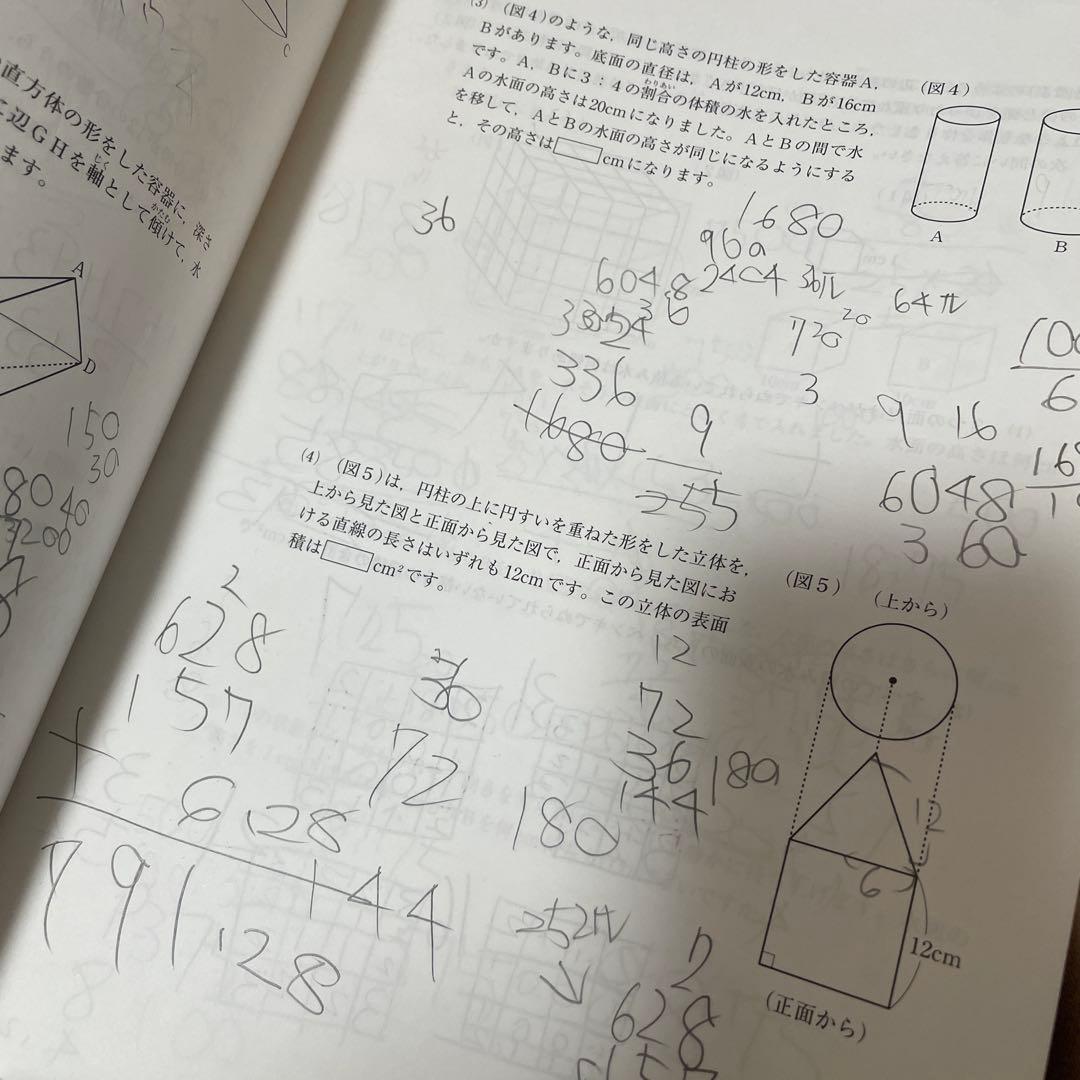 直方体の形をした容器に，深さ
辺GHを軸として傾けて，水
ます。
じく
かたむ
C
A
D
150
30
8040
3200
(3) (図4)のような，同じ高さの円柱の形をした容器A，
Bがあります。底面の直径は，Aが12cm，Bが16cm
です。A，Bに3：4の割合の体積の水を入れたところ，
わりあい
Aの水面の高さは20cmになりました。AとBの間で水
を移して，AとBの水面の高さが同じになるようにする
と，その高さは□cmになります。
(図4)
A
B
36
1680
960
6048
36π
64π
720
20
336
3
1680
9
9 16
255
6048
3 60
(4) (図5)は，円柱の上に円すいを重ねた形をした立体を，
上から見た図と正面から見た図で，正面から見た図にお
ける直線の長さはいずれも12cmです。この立体の表面
積は□cm²です。
(図5)
(上から)
12
6
12cm
(正面から)
2
628
157
+ 6.28
791.28
36
72
144
12
72
36
144
180
180
252π
↓
2
628